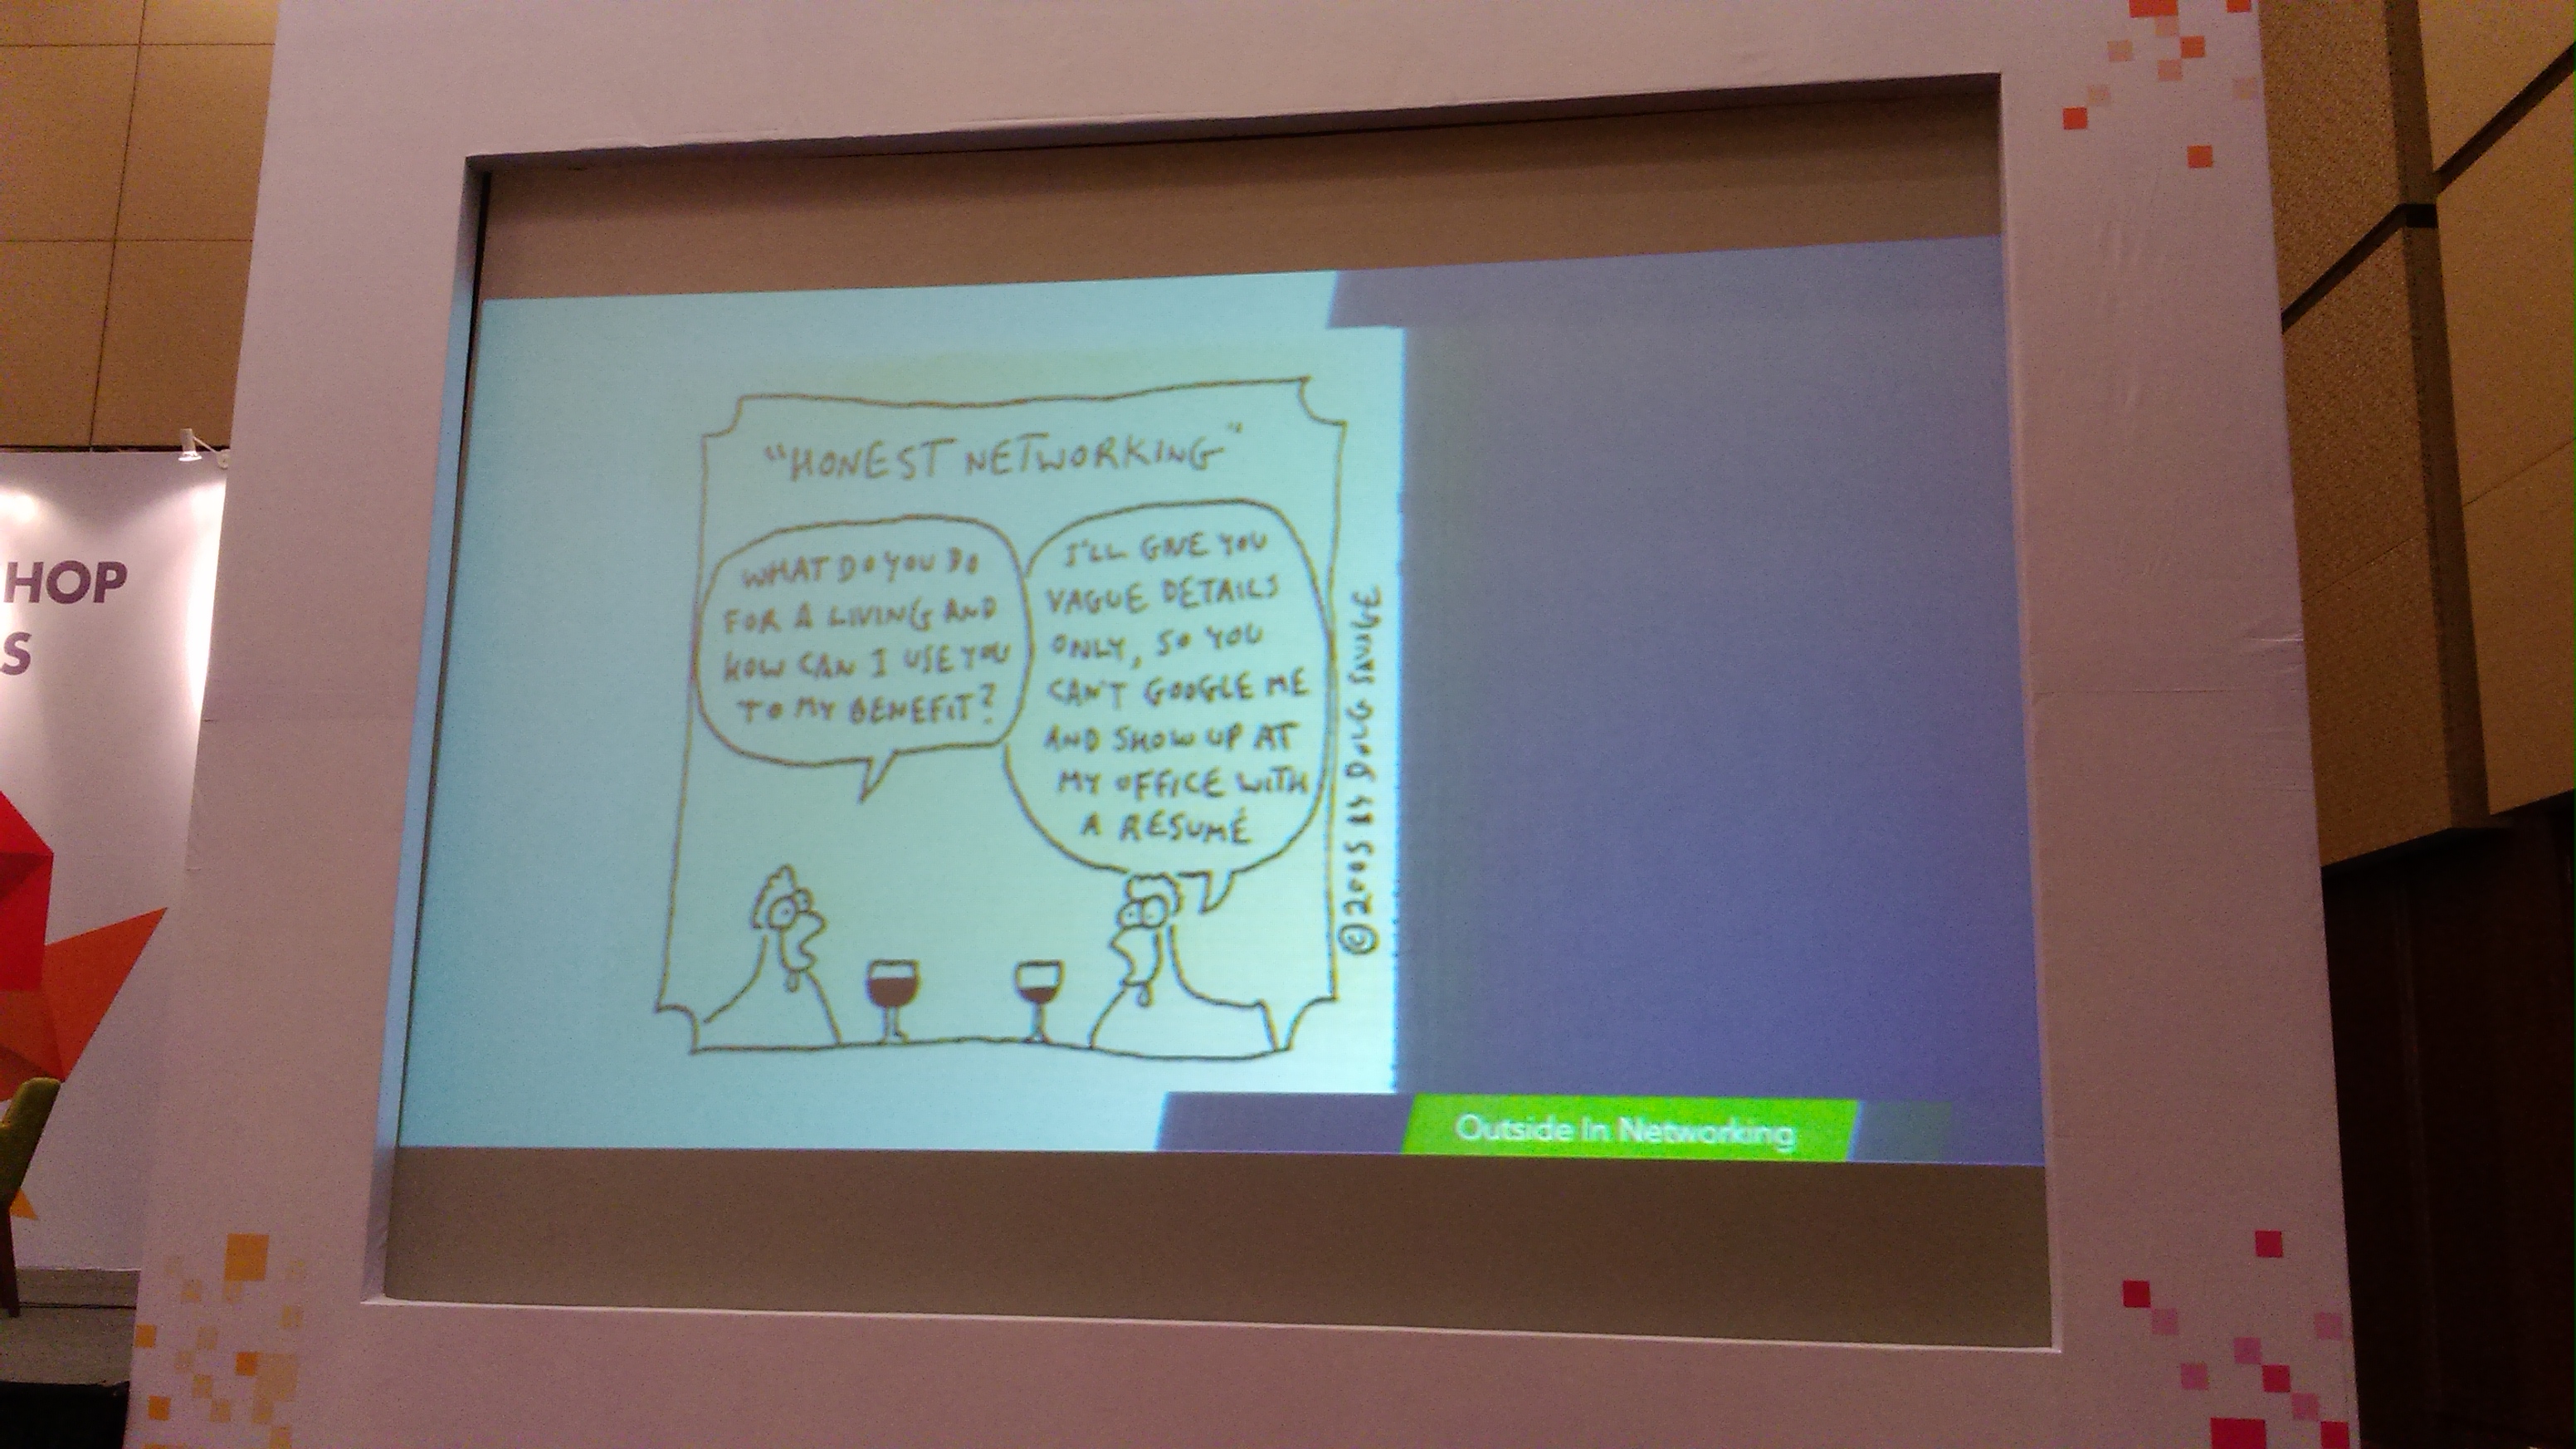 HOP
S
"HONEST NETWORKING"
WHAT DO YOU DO
FOR A LIVING AND
HOW CAN I USE YOU
TO MY BENEFIT?
I'LL GIVE YOU
VAGUE DETAILS
ONLY, SO YOU
CAN'T GOOGLE ME
AND SHOW UP AT
MY OFFICE WITH
A RESUMÉ
©2005 BY DOUG SAVAGE
Outside In Networking